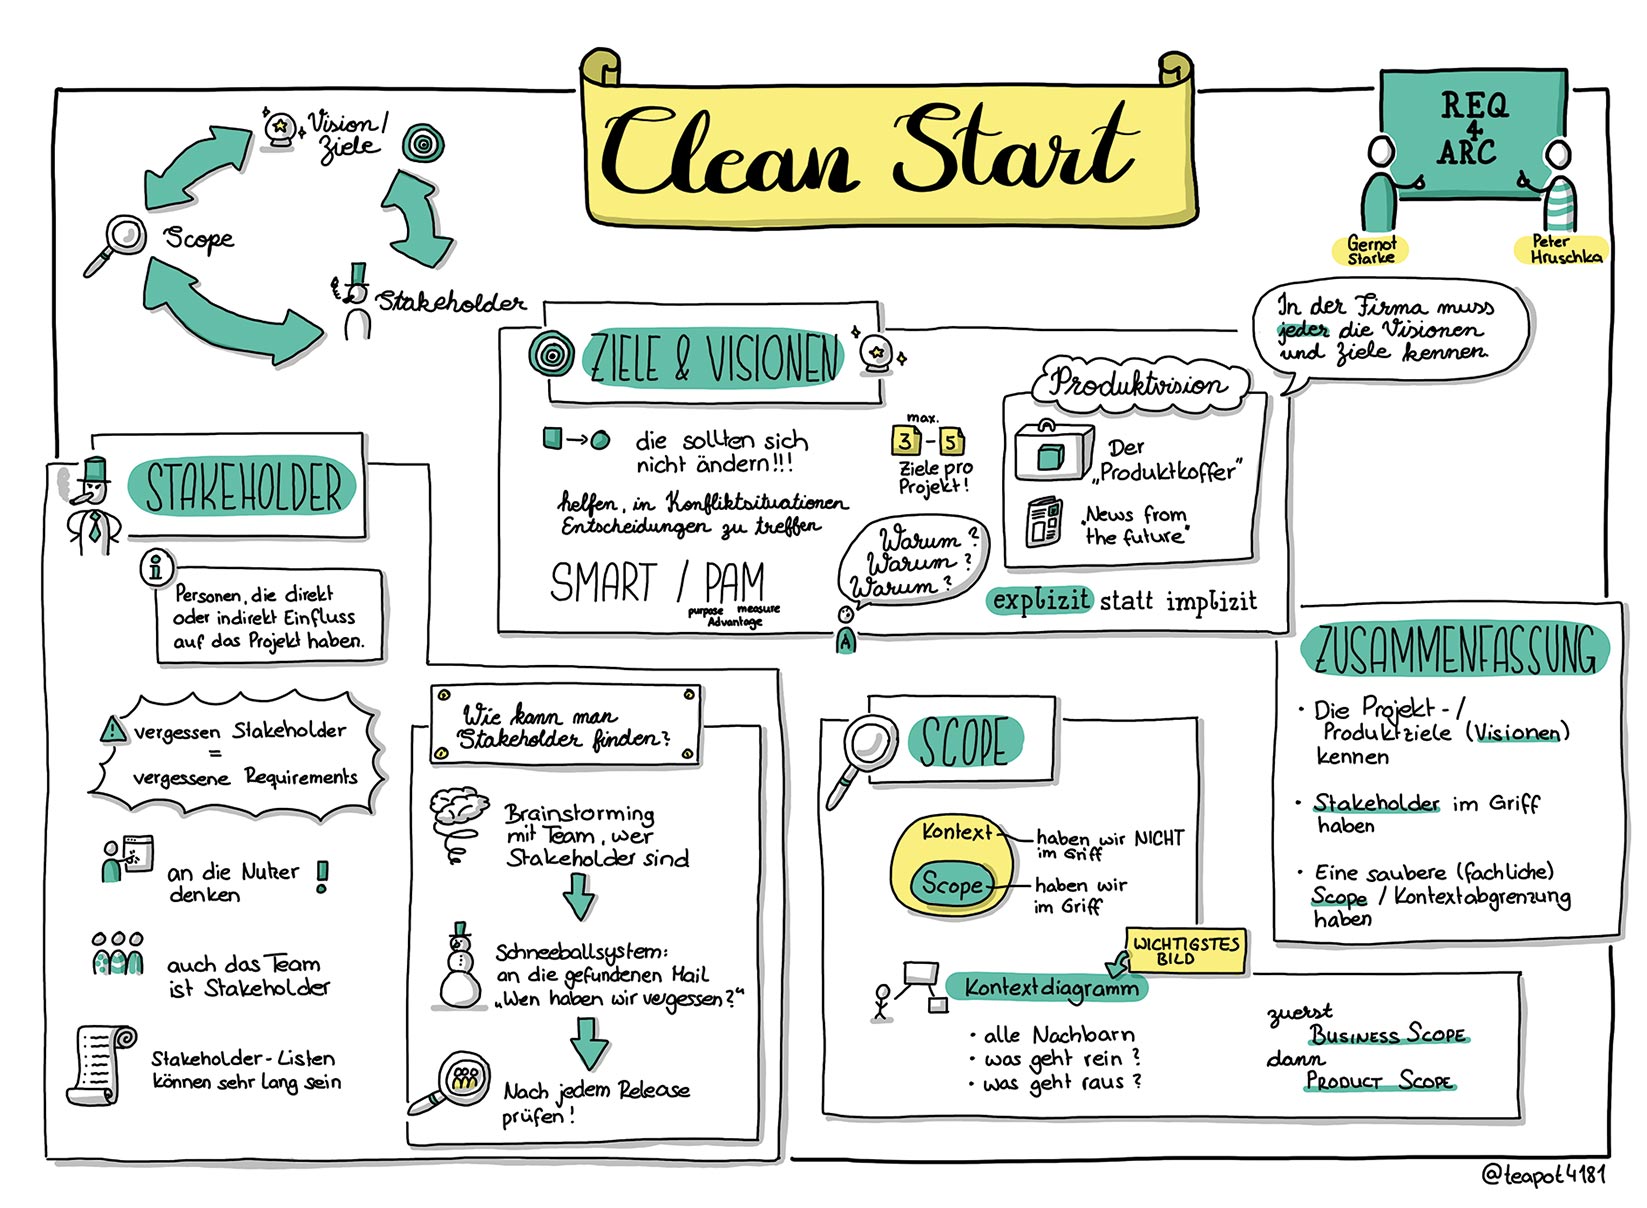 Clean Start
REQ
4
ARC
Gernot
Starke
Peter
Hruschka
Vision/
Ziele
Scope
Stakeholder
In der Firma muss
jeder die Visionen
und Ziele kennen.
ZIELE & VISIONEN
die sollten sich
nicht ändern!!!
helfen, in Konfliktsituationen
Entscheidungen zu treffen
SMART / PAM
purpose measure
Advantage
max.
3 - 5
Ziele pro
Projekt!
Warum?
Warum?
Warum?
A
Produktvision
Der
„Produktkoffer“
„News from
the future“
explizit statt implizit
STAKEHOLDER
i
Personen, die direkt
oder indirekt Einfluss
auf das Projekt haben.
! vergessen Stakeholder
=
vergessene Requirements
an die Nutzer !
denken
auch das Team
ist Stakeholder
Stakeholder-Listen
können sehr lang sein
Wie kann man
Stakeholder finden?
Brainstorming
mit Team, wer
Stakeholder sind
Schneeballsystem:
an die gefundenen Mail
„Wen haben wir vergessen?“
Nach jedem Release
prüfen!
SCOPE
Kontext
haben wir NICHT
im Griff
Scope
haben wir
im Griff
WICHTIGSTES
BILD
Kontextdiagramm
• alle Nachbarn
• was geht rein?
• was geht raus?
zuerst
BUSINESS SCOPE
dann
PRODUCT SCOPE
ZUSAMMENFASSUNG
• Die Projekt-/
Produktziele (Visionen)
kennen
• Stakeholder im Griff
haben
• Eine saubere (fachliche)
Scope / Kontextabgrenzung
haben
@teapot4181